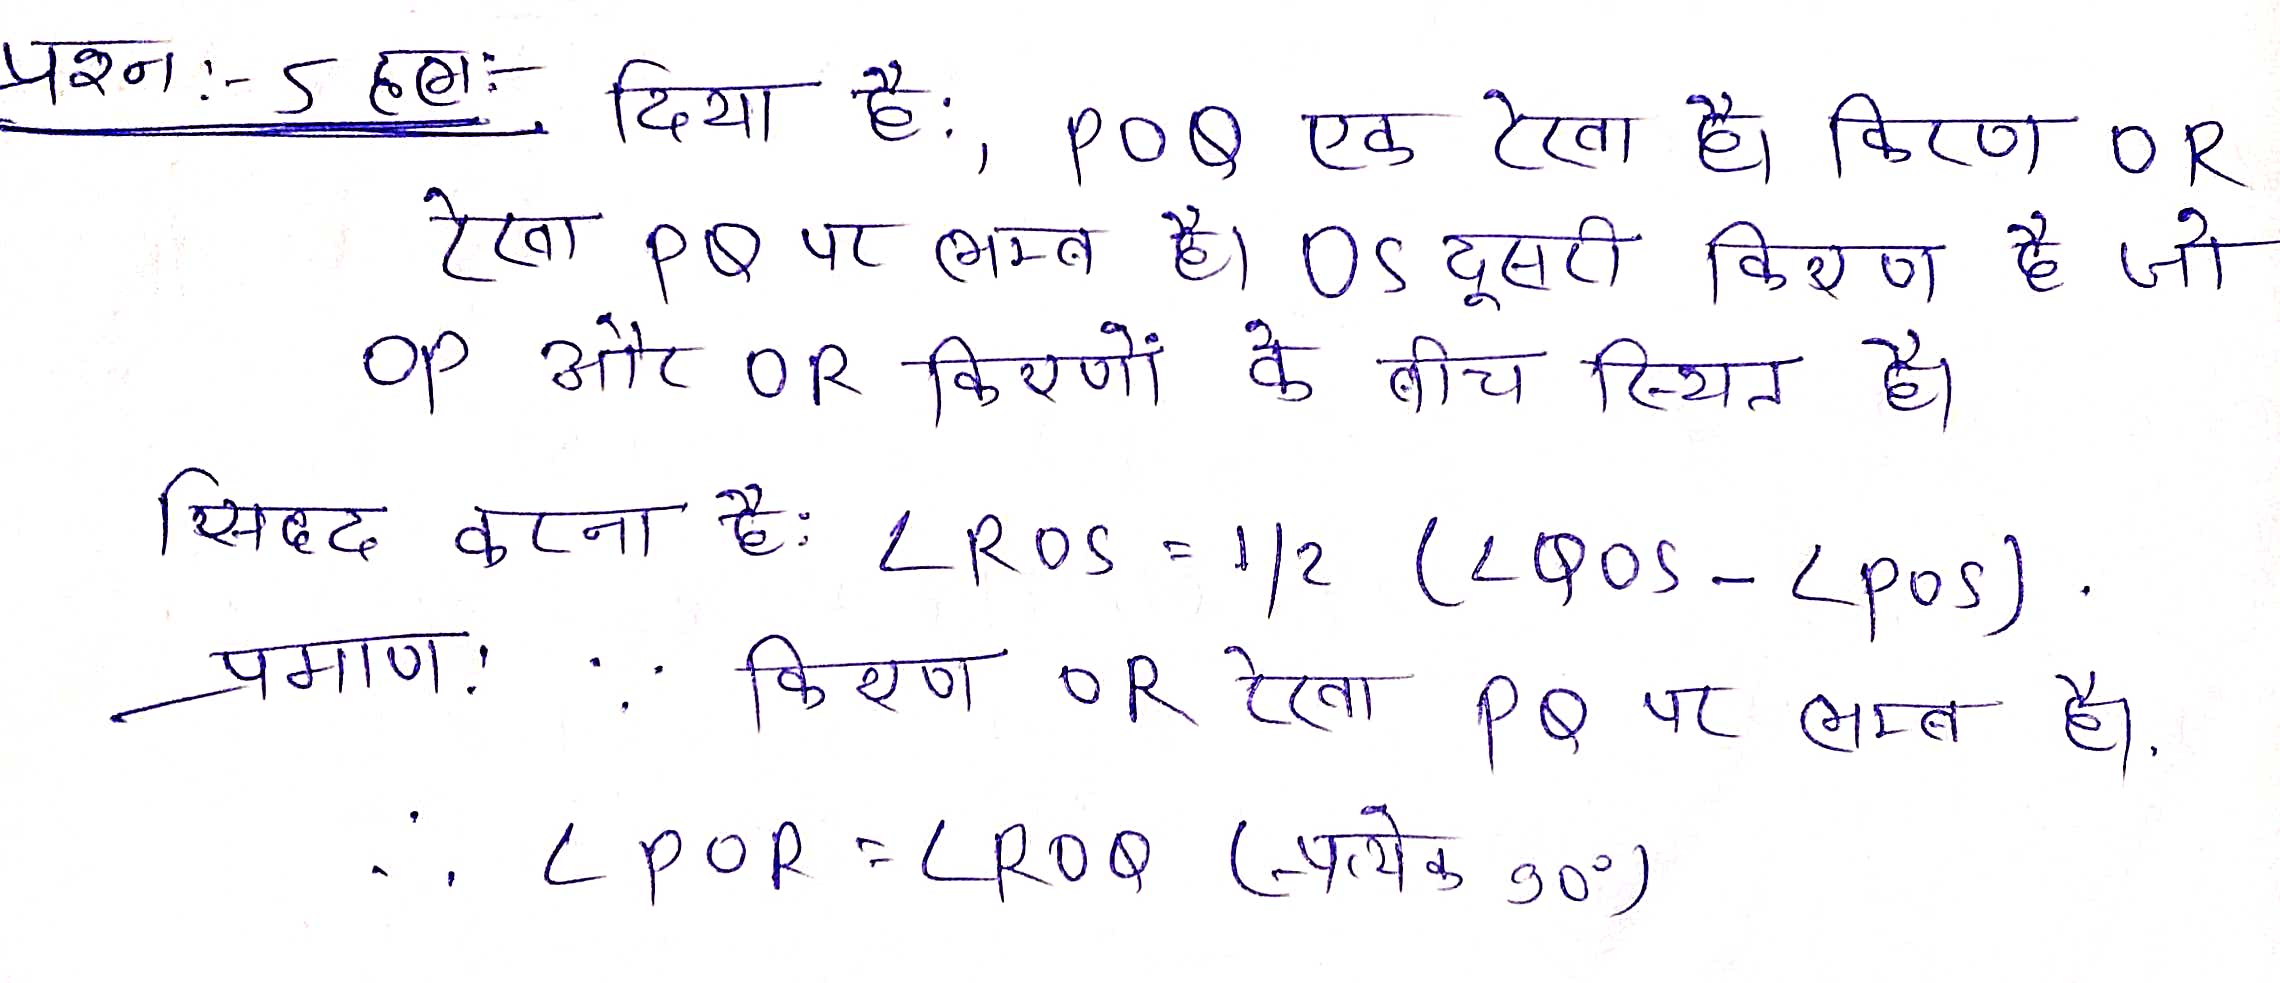 प्रश्न:- 5 हल:- दिया है:, POQ एक रेखा है। किरण OR
रेखा PQ पर लम्ब है। OS दूसरी किरण है जो
OP और OR किरणों के बीच स्थित है।
सिद्ध करना है: ∠ROS = 1/2 (∠QOS - ∠POS).
प्रमाण: ∵ किरण OR रेखा PQ पर लम्ब है।.
∴ ∠POR = ∠ROQ (प्रत्येक 90°)